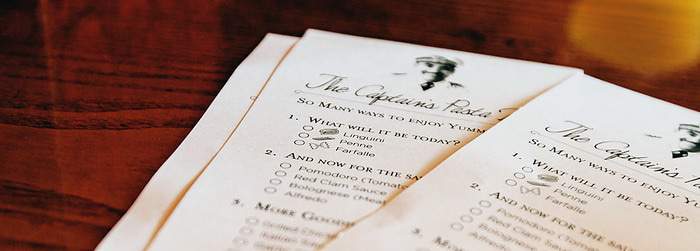 The Captain's Pasta
So Many ways to enjoy Yumm
1. What will it be today?
Linguini
Penne
Farfalle
2. And now for the sa
Pomodoro (Tomato
Red Clam Sauce
Bolognese (Meat
Alfredo
3. More Good
Grilled Chic
The Captain's Pa
So Many ways to enjoy Yu
1. What will it be today?
Linguini
Penne
Farfalle
2. And now for the
Pomodoro (Tomato
Red Clam Sauce
Bolognese (Mea
Alfredo
3. More